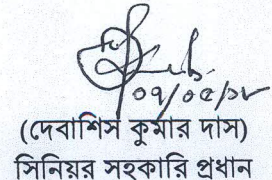 ০৭/০৫/১৮
(দেবাশিস কুমার দাস)
সিনিয়র সহকারি প্রধান